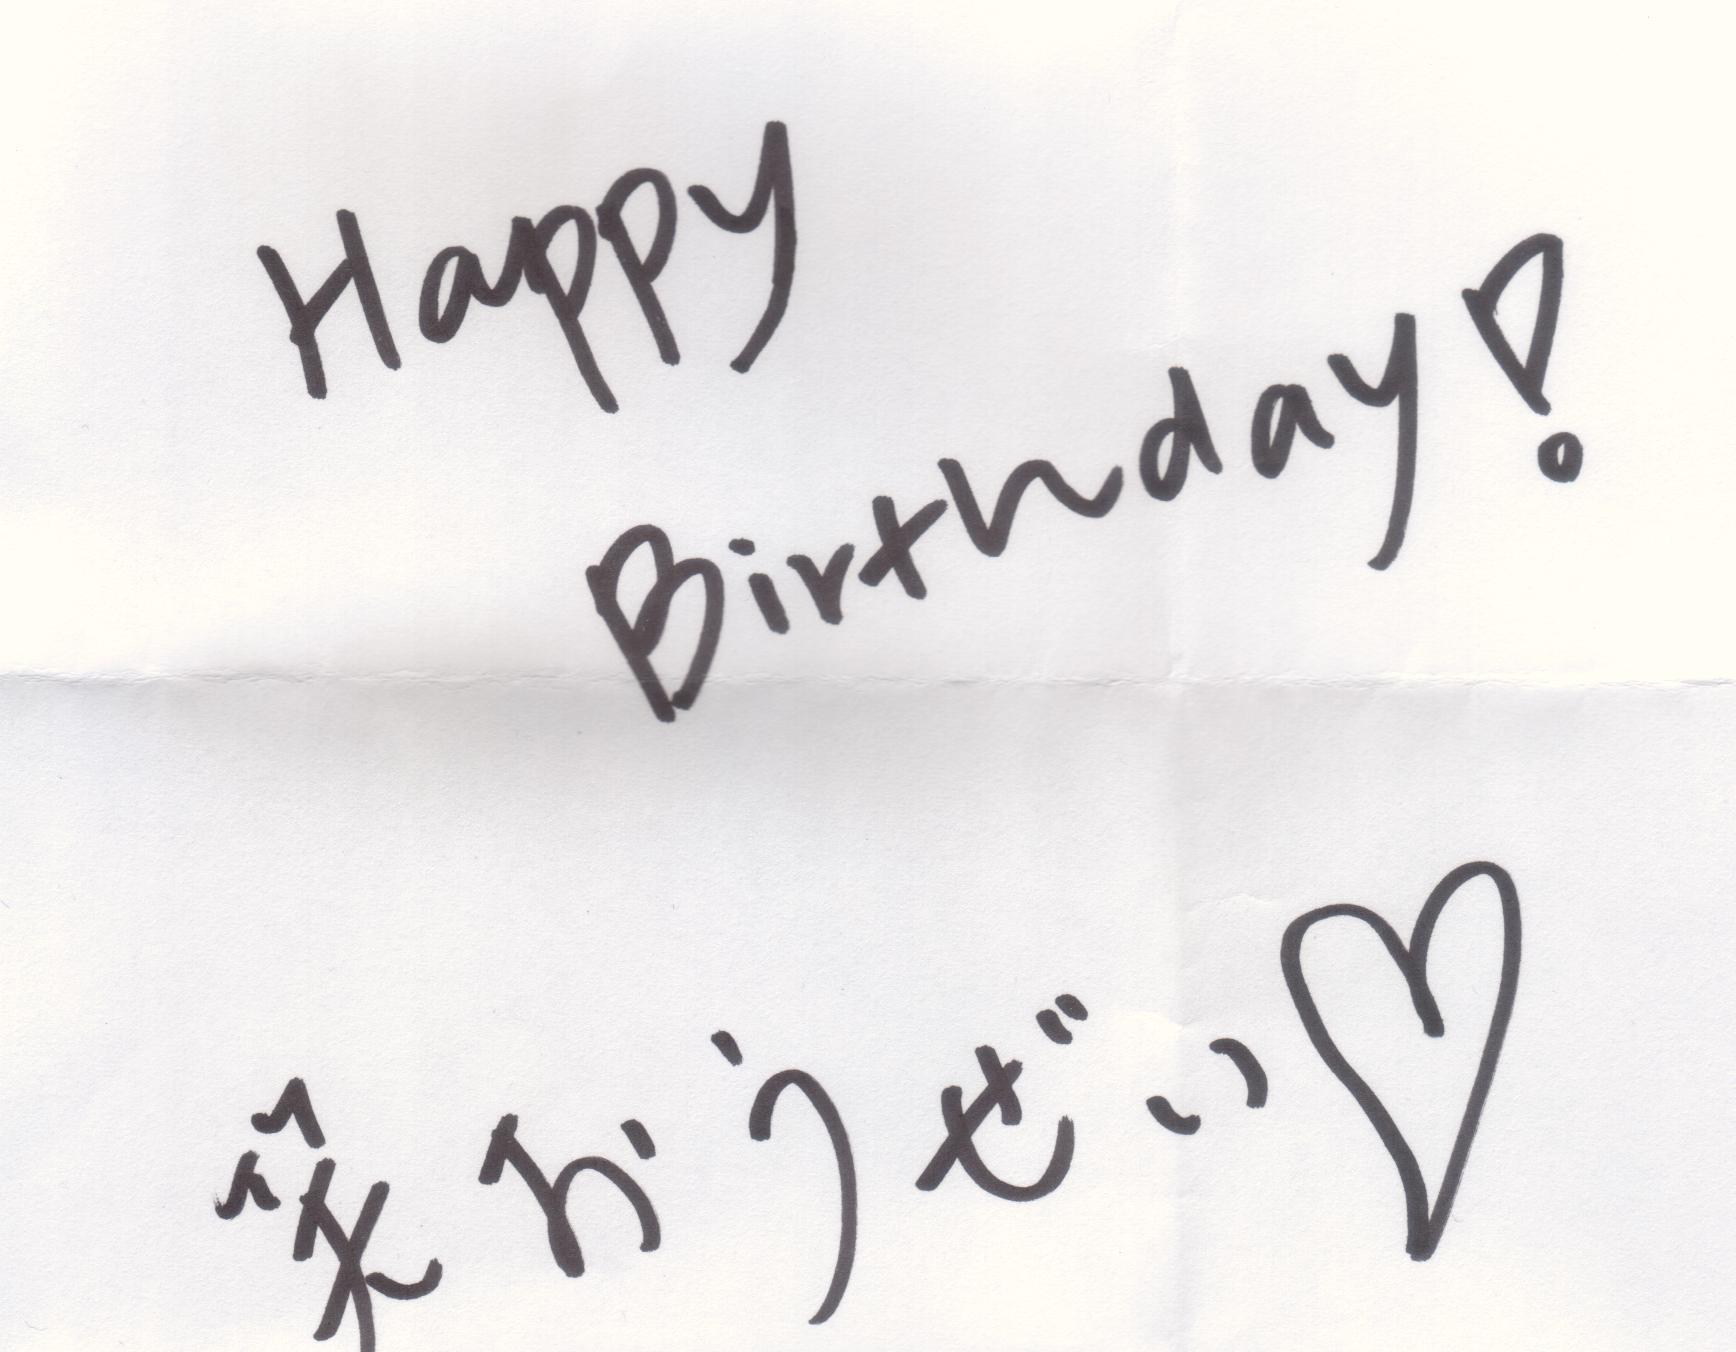 Happy
Birthday!
笑かうぜい♡